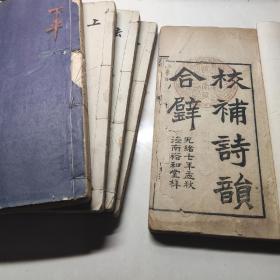 校補詩韻
合璧
光緒七年孟秋
海南裕和堂梓
下平
上
去